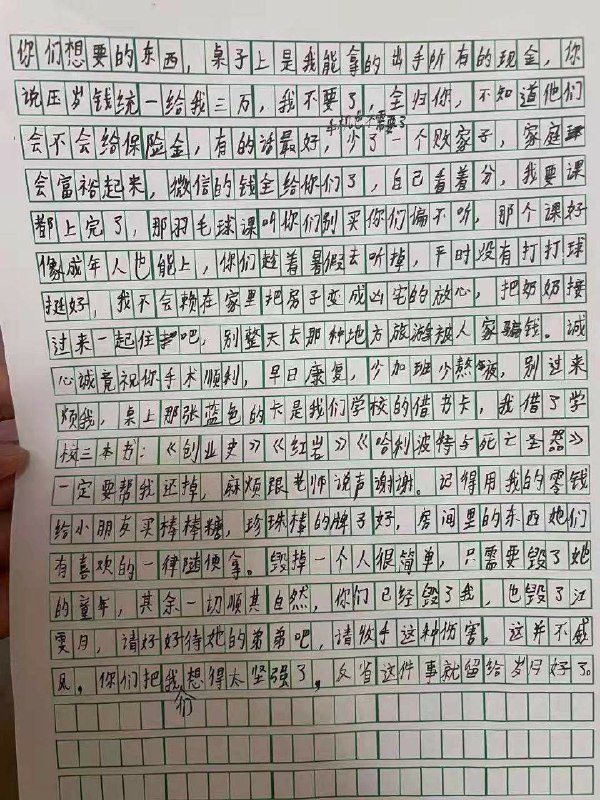 你们想要的东西，桌子上是我能拿的出手所有的现金，你
说压岁钱统一给我三万，我不要了，全归你，不知道他们
手机也不需要了
会不会给保险金，有的话最好，少了一个败家子，家庭
会富裕起来，微信的钱全给你们了，自己看着分，我要课
都上完了，那羽毛球课听你们别买你们偏不听，那个课好
像成年人也能上，你们趁着暑假去听掉，平时没有打打球
挺好，我不会赖在家里把房子变成凶宅的放心，把奶奶接
过来一起住吧，别整天去那种地方旅游被人家骗钱。诚
心诚竟祝你手术顺利，早日康复，少加班少熬夜，别过来
烦我，桌上那张蓝色的卡是我们学校的借书卡，我借了学
校三本书：《创业史》《红岩》《哈利波特与死亡圣器》
一定要帮我还掉，麻烦跟老师说声谢谢。记得用我的零钱
给小朋友买棒棒糖，珍珠棒的牌子好，房间里的东西她们
有喜欢的一律随便拿。毁掉一个人很简单，只需要毁了她
的童年，其余一切顺其自然，你们已经毁了我，也毁了江
雯月，请好好待她的弟弟吧，请收手这种伤害，这并不威
风。你们把我们想得太坚强了，反省这件事就留给岁月好了。